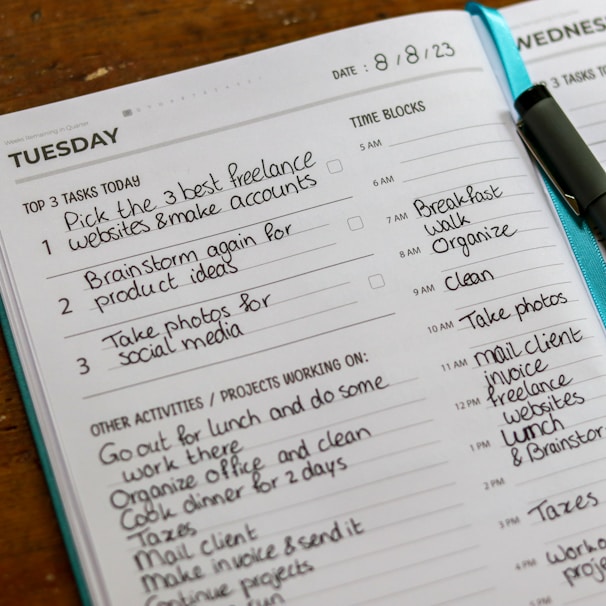 Weeks Remaining in Quarter
TUESDAY
DATE : 8/8/23
TOP 3 TASKS TODAY
1 Pick the 3 best freelance
websites & make accounts
2 Brainstorm again for
product ideas
3 Take photos for
social media
OTHER ACTIVITIES / PROJECTS WORKING ON:
Go out for lunch and do some
work there
Organize office and clean
Cook dinner for 2 days
Taxes
Mail client
Make invoice & send it
Continue projects
run
TIME BLOCKS
5 AM
6 AM
7 AM Breakfast
walk
8 AM Organize
9 AM Clean
10 AM Take photos
11 AM mail client
invoice
12 PM freelance
websites
1 PM Lunch
& Brainstor
2 PM
3 PM Taxes
4 PM Worko
proje
5 PM
WEDNES
TOP 3 TASKS TO